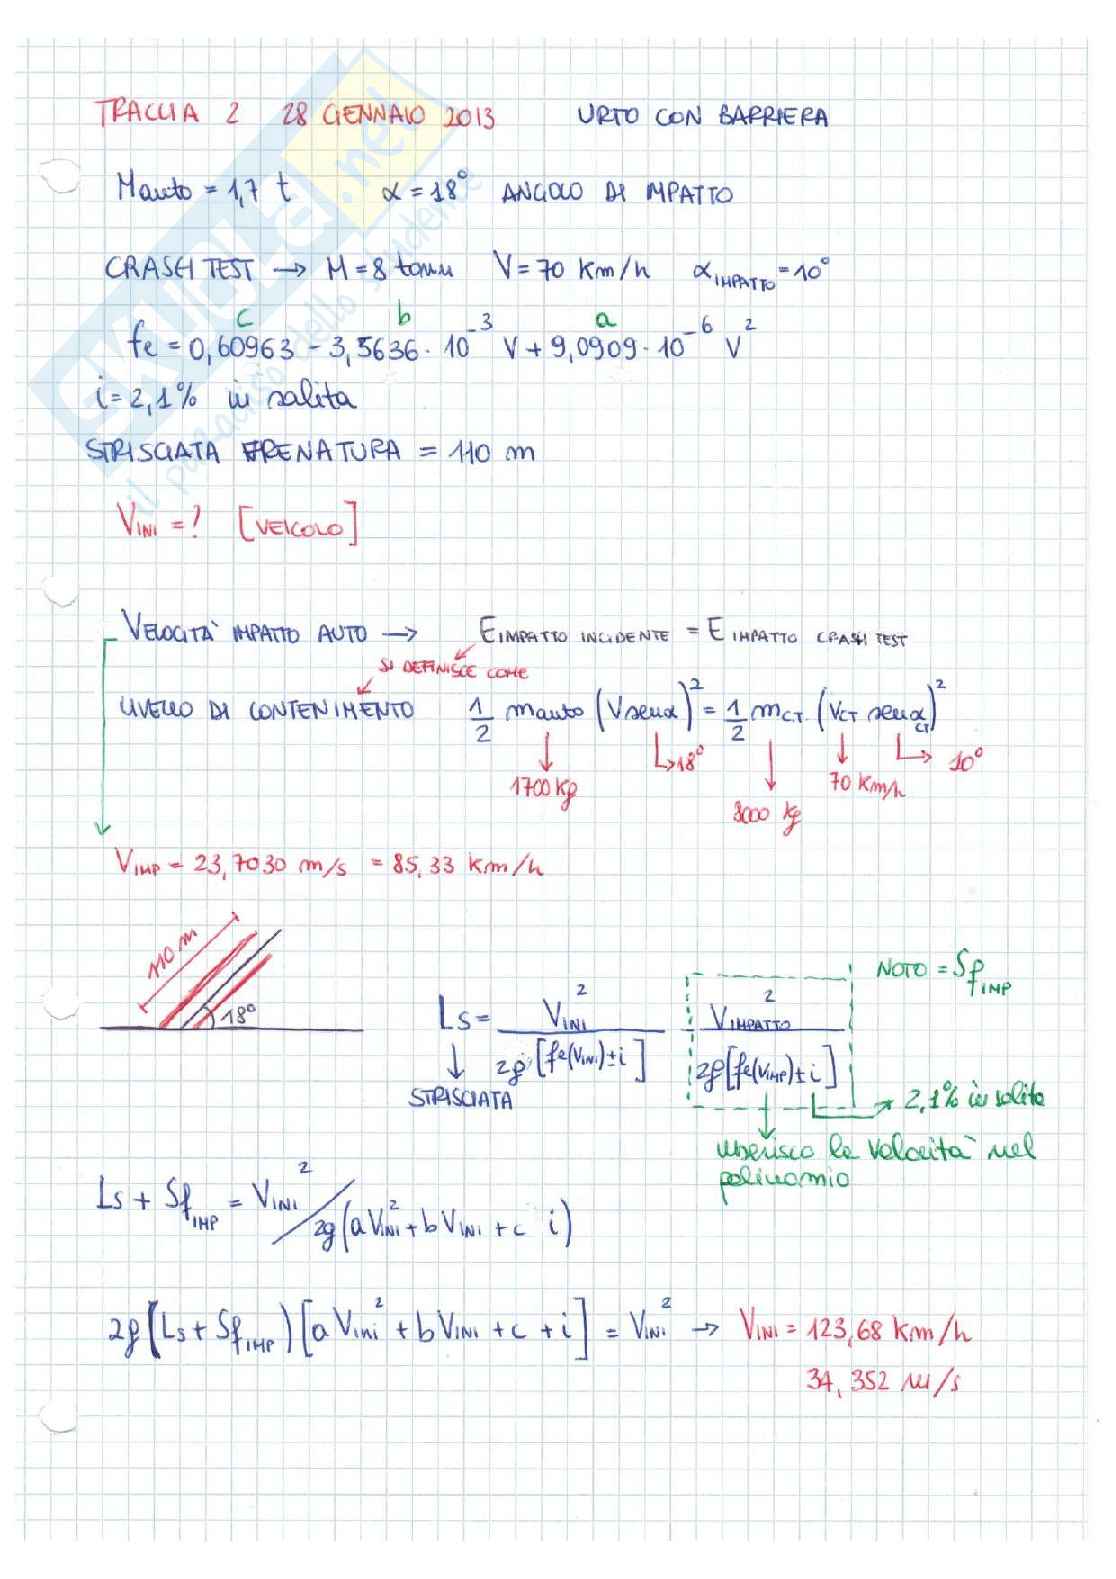 TRACCIA 2 28 GENNAIO 2013 URTO CON BARRIERA
Mauto = 1,7 t α = 18° ANGOLO DI IMPATTO
CRASH TEST → M = 8 tonn V = 70 Km/h α IMPATTO = 10°
c b a
fe = 0,60963 - 3,5636 · 10^-3 V + 9,0909 · 10^-6 V^2
i = 2,1% in salita
STRISCIATA FRENATURA = 110 m
VINI = ? [VEICOLO]
SKUOLA.net
il paradiso dello studente
VELOCITA' IMPATTO AUTO → E IMPATTO INCIDENTE = E IMPATTO CRASH TEST
SI DEFINISCE COME
LIVELLO DI CONTENIMENTO 1/2 mauto (V senα)^2 = 1/2 mCT (VCT senαCT)^2
1700 Kg 18° 8000 Kg 70 Km/h 10°
VIMP = 23,7030 m/s = 85,33 Km/h
110 m
18°
NOTO = Sf IMP
Ls = VINI^2 / 2g [fe(VINI) ± i] - VIMPATTO^2 / 2g [fe(VIMP) ± i]
STRISCIATA
2,1% in salita
inserisco la velocità nel
polinomio
Ls + Sf IMP = VINI^2 / 2g (a VINI^2 + b VINI + c i)
2g (Ls + Sf IMP) [a Vini^2 + b VINI + c + i] = VINI^2 → VINI = 123,68 Km/h
34,352 m/s